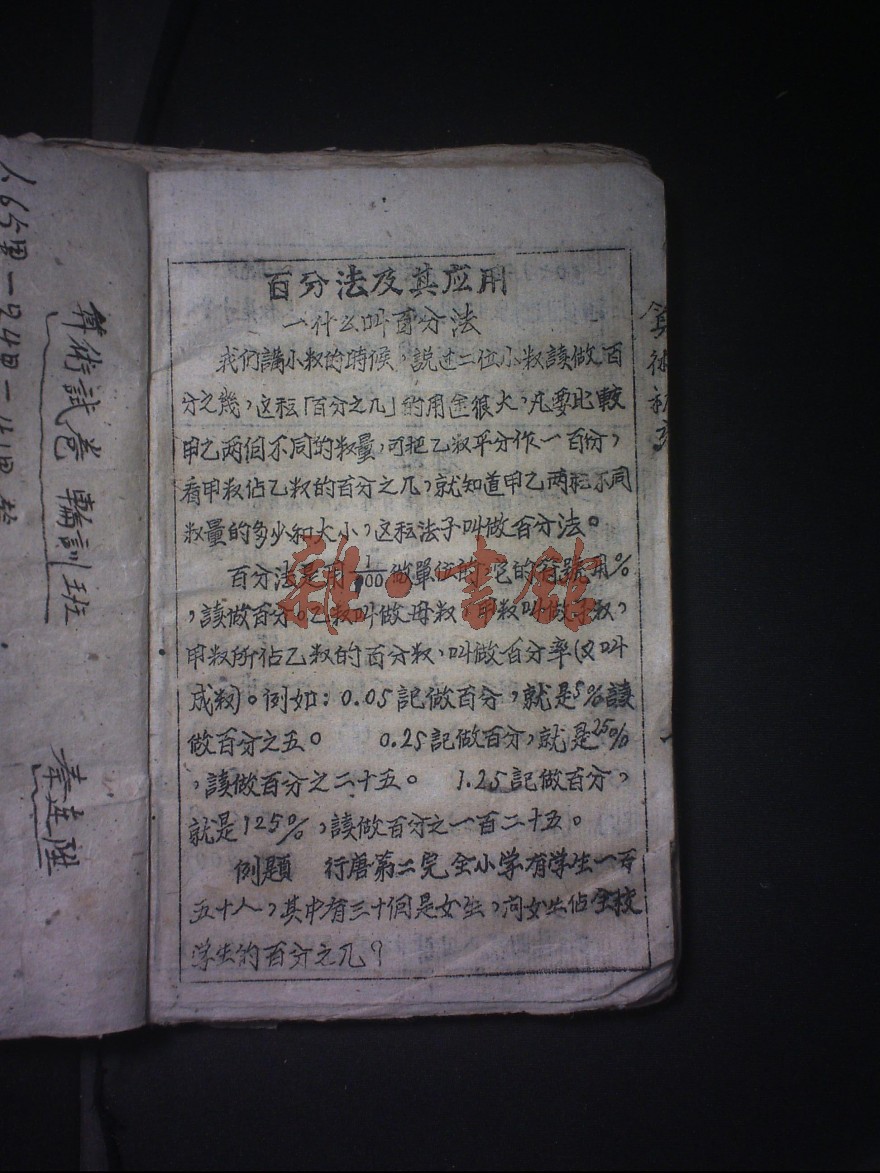 百分法及其应用
一什么叫百分法
我们講小数的時候，説过二位小数讀做百
分之幾，这种「百分之几」的用途很大，凡要比較
甲乙两個不同的数量，可把乙数平分作一百份，
看甲数佔乙数的百分之几，就知道甲乙两种不同
数量的多少和大小，这种法子叫做百分法。
百分法是用1/100做單位的，它的符號用%
，讀做百分。乙数叫做母数，甲数叫做子数，
甲数所佔乙数的百分数，叫做百分率(又叫
成数)。例如：0.05記做百分，就是5%讀
做百分之五。 0.25記做百分，就是25%
，讀做百分之二十五。 1.25記做百分，
就是125%，讀做百分之一百二十五。
例題 行唐第二完全小学有学生一百
五十人，其中有三十個是女生，问女生佔全校
学生的百分之几？
雜·書館
算術試卷 輪訓班